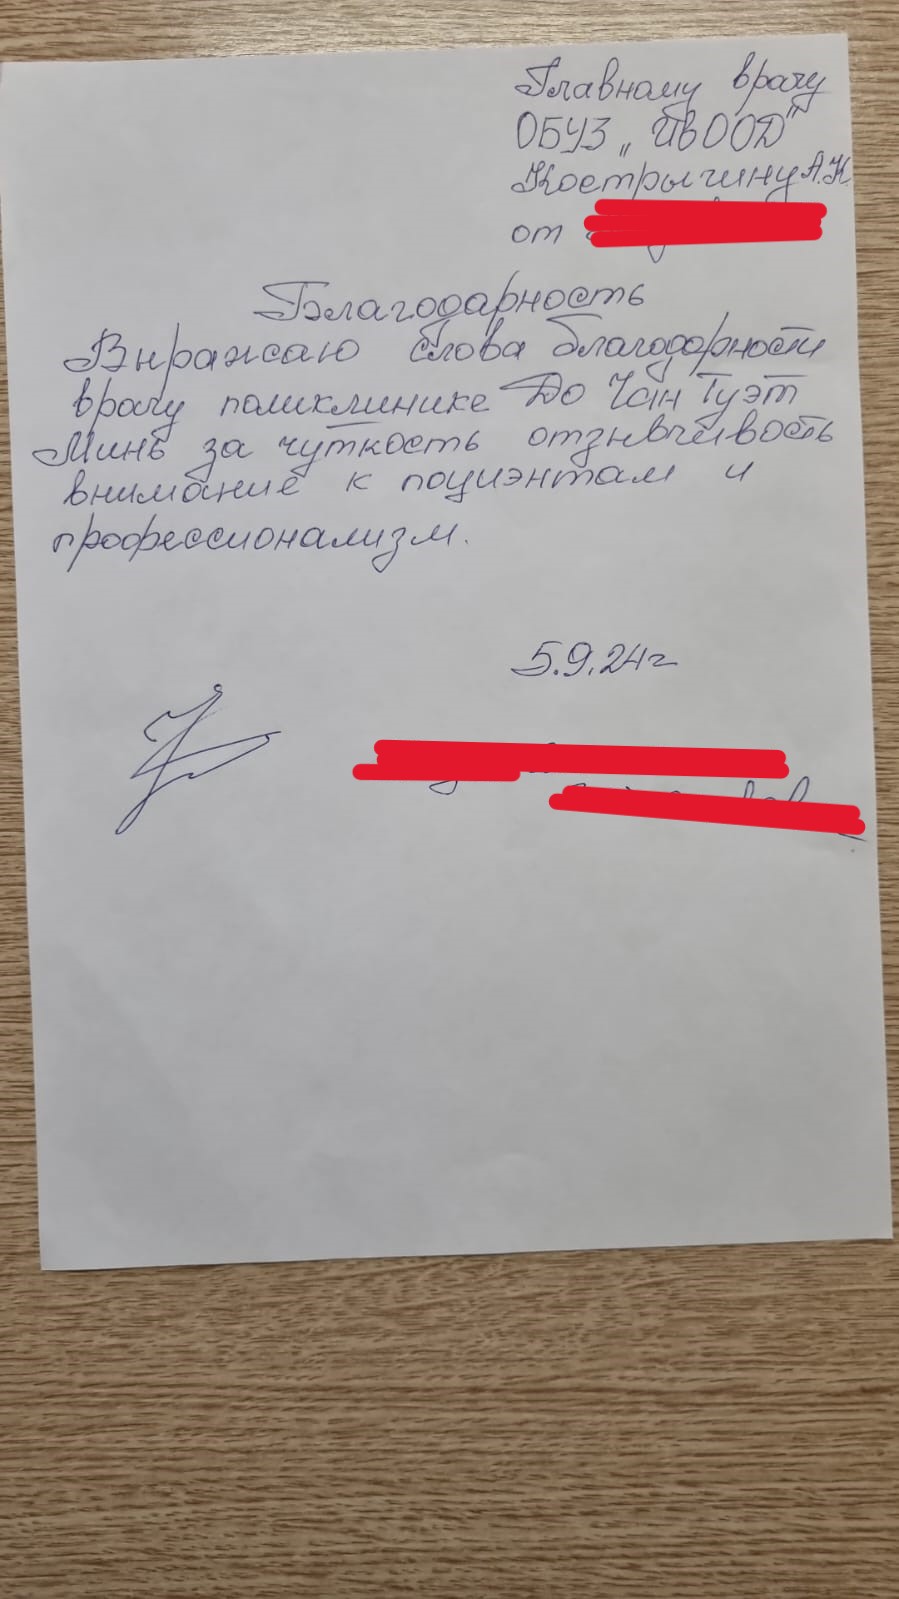 Главному врачу
ОБУЗ „ИвООД"
Кострычину А.К.
от
Благодарность
Выражаю слова благодарности
врачу поликлинике До Чан Туэт
Минь за чуткость отзывчивость
внимание к пациэнтам и
профессионализм.
5.9.24г